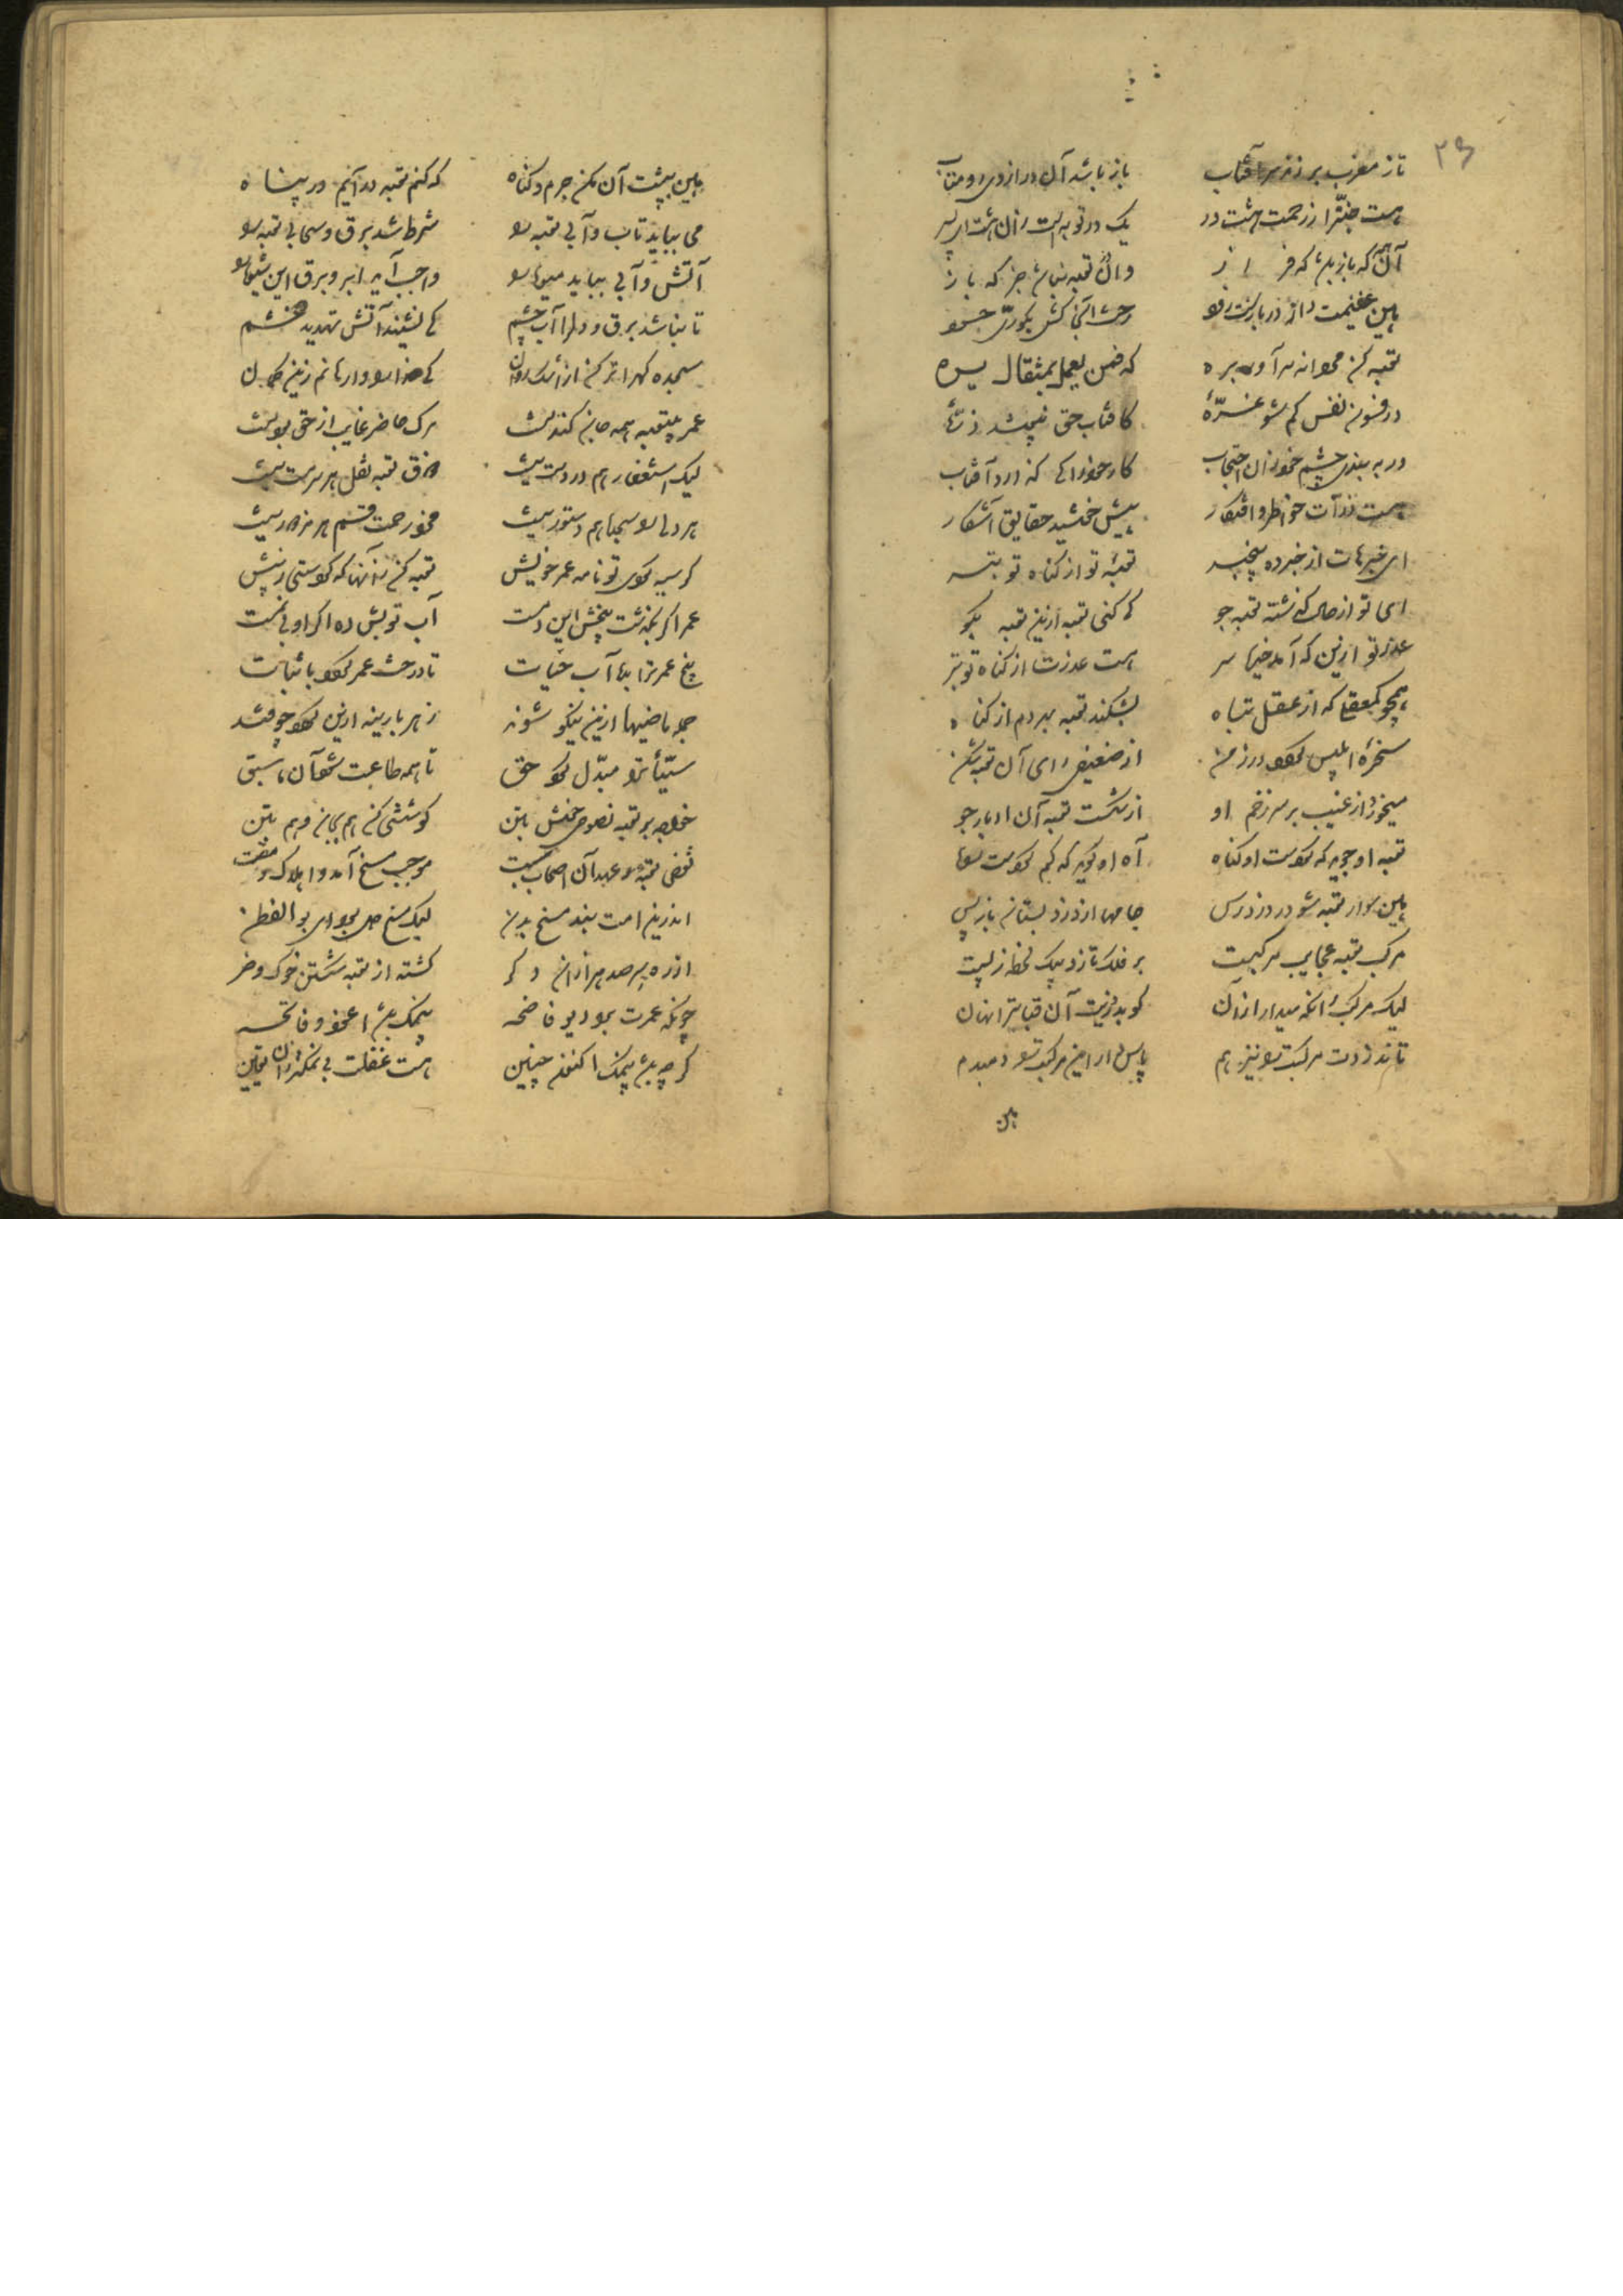 ۲۶
تا ز مغرب بر زند سر آفتاب باز باشد آن در از وی رو متاب
هست جنت را ز رحمت هشت در یک در توبه است زان هشت ای پسر
آن همه که باز باشد که فراز وان در توبه نباشد جز که باز
هین غنیمت دار در باز است زود رخت آنجا کش بکوری حسود
توبه کن مردانه سر آور بره که فمن یعمل بمثقال یره
در فسون نفس کم شو غرّهٔ کافتاب حق نپوشد ذرّهٔ
ور به بندی چشم خود زان احتجاب کار خود را کی گذارد آفتاب
هست ذرّات خواطر و افتکار پیش خورشید حقایق آشکار
ای خبرهات از خبرده بیخبر توبهٔ تو از گناه تو بتر
ای تو از حال گذشته توبه جو کی کنی توبه ازین توبه بگو
هست عذرت از گناه تو بتر
همچو کم عقلی که از عقل تباه بشکند توبه بهر دم از گناه
سخرهٔ ابلیس گردد در زمن از ضعیفی رای آن توبه شکن
میخورد از غیب بر سر زخم او از شکست توبه آن ادبار جو
هین سوار توبه شو در دزد رس جامها از دزد بستان باز پس
مرکب توبه عجایب مرکبست بر فلک تازد بیک لحظه ز پست
لیک مرکب را نگه میدار از آن کو بدزدید آن قبایت را نهان
تا ندزدد مرکبت را نیز هم پاس دار این مرکبت را دمبدم
هین
هین بپشت آن مکن جرم و گناه که کنم توبه درآیم در پناه
می بباید تاب و آبی توبه را شرط شد برق و سحابی توبه را
آتش و آبی بباید میوه را واجب آید ابر و برق این شیوه را
تا نباشد برق دل و ابر دو چشم کی نشیند آتش تهدید و خشم
سجده گه را تر کن از اشک روان کای خدایا وارهانم زین گمان
عمر بی توبه همه جان کندنست مرگ حاضر غایب از حق بودنست
لیک استغفار هم در دست نیست ذوق توبه نقل هر سرمست نیست
هر دلی را سجده هم دستور نیست مزد رحمت قسم هر مزدور نیست
گر سیه کردی تو نامه عمر خویش توبه کن زآنها که کردستی ز پیش
عمر اگر بگذشت بیخش این دمست آب توبه‌ش ده اگر او بی نمست
بیخ عمرت را بده آب حیات تا درخت عمر گردد با ثبات
جمله ماضیها ازین نیکو شوند زهر پارینه ازین گردد چو قند
سیّأت را مبدّل کرد حق تا همه طاعت شود آن ما سبق
خواجه بر توبه نصوحی خوش بتن کوششی کن هم بجان و هم بتن
نقض توبه و عهد آن اصحاب سبت موجب مسخ آمد و اهلاک و مقت
اندرین امت نبد مسخ بدن لیک مسخ دل بود ای بوالفطن
از ره سر صد هزاران دگر گشته از توبه شکستن خوک و خر
چونکه عمرت برد دیو فاضحه بی نمک باشد اعوذ و فاتحه
گرچه باشد بی نمک اکنون چنین هست غفلت بی نمکتر زان یقین